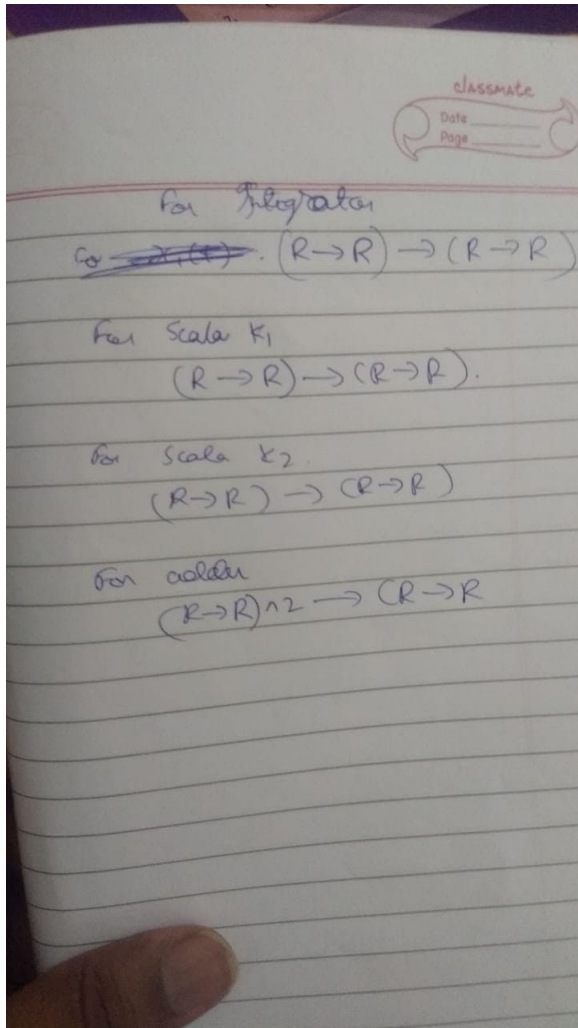 classmate
Date
Page
For Integrator
(R→R) → (R→R)
For Scala K1
(R→R) → (R→R).
For Scala K2.
(R→R) → (R→R)
For adder
(R→R)^2 → (R→R